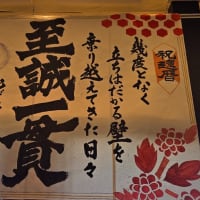 祝還暦
幾度となく
立ちはだかる壁を
乗り越えてきた日々
至誠一貫